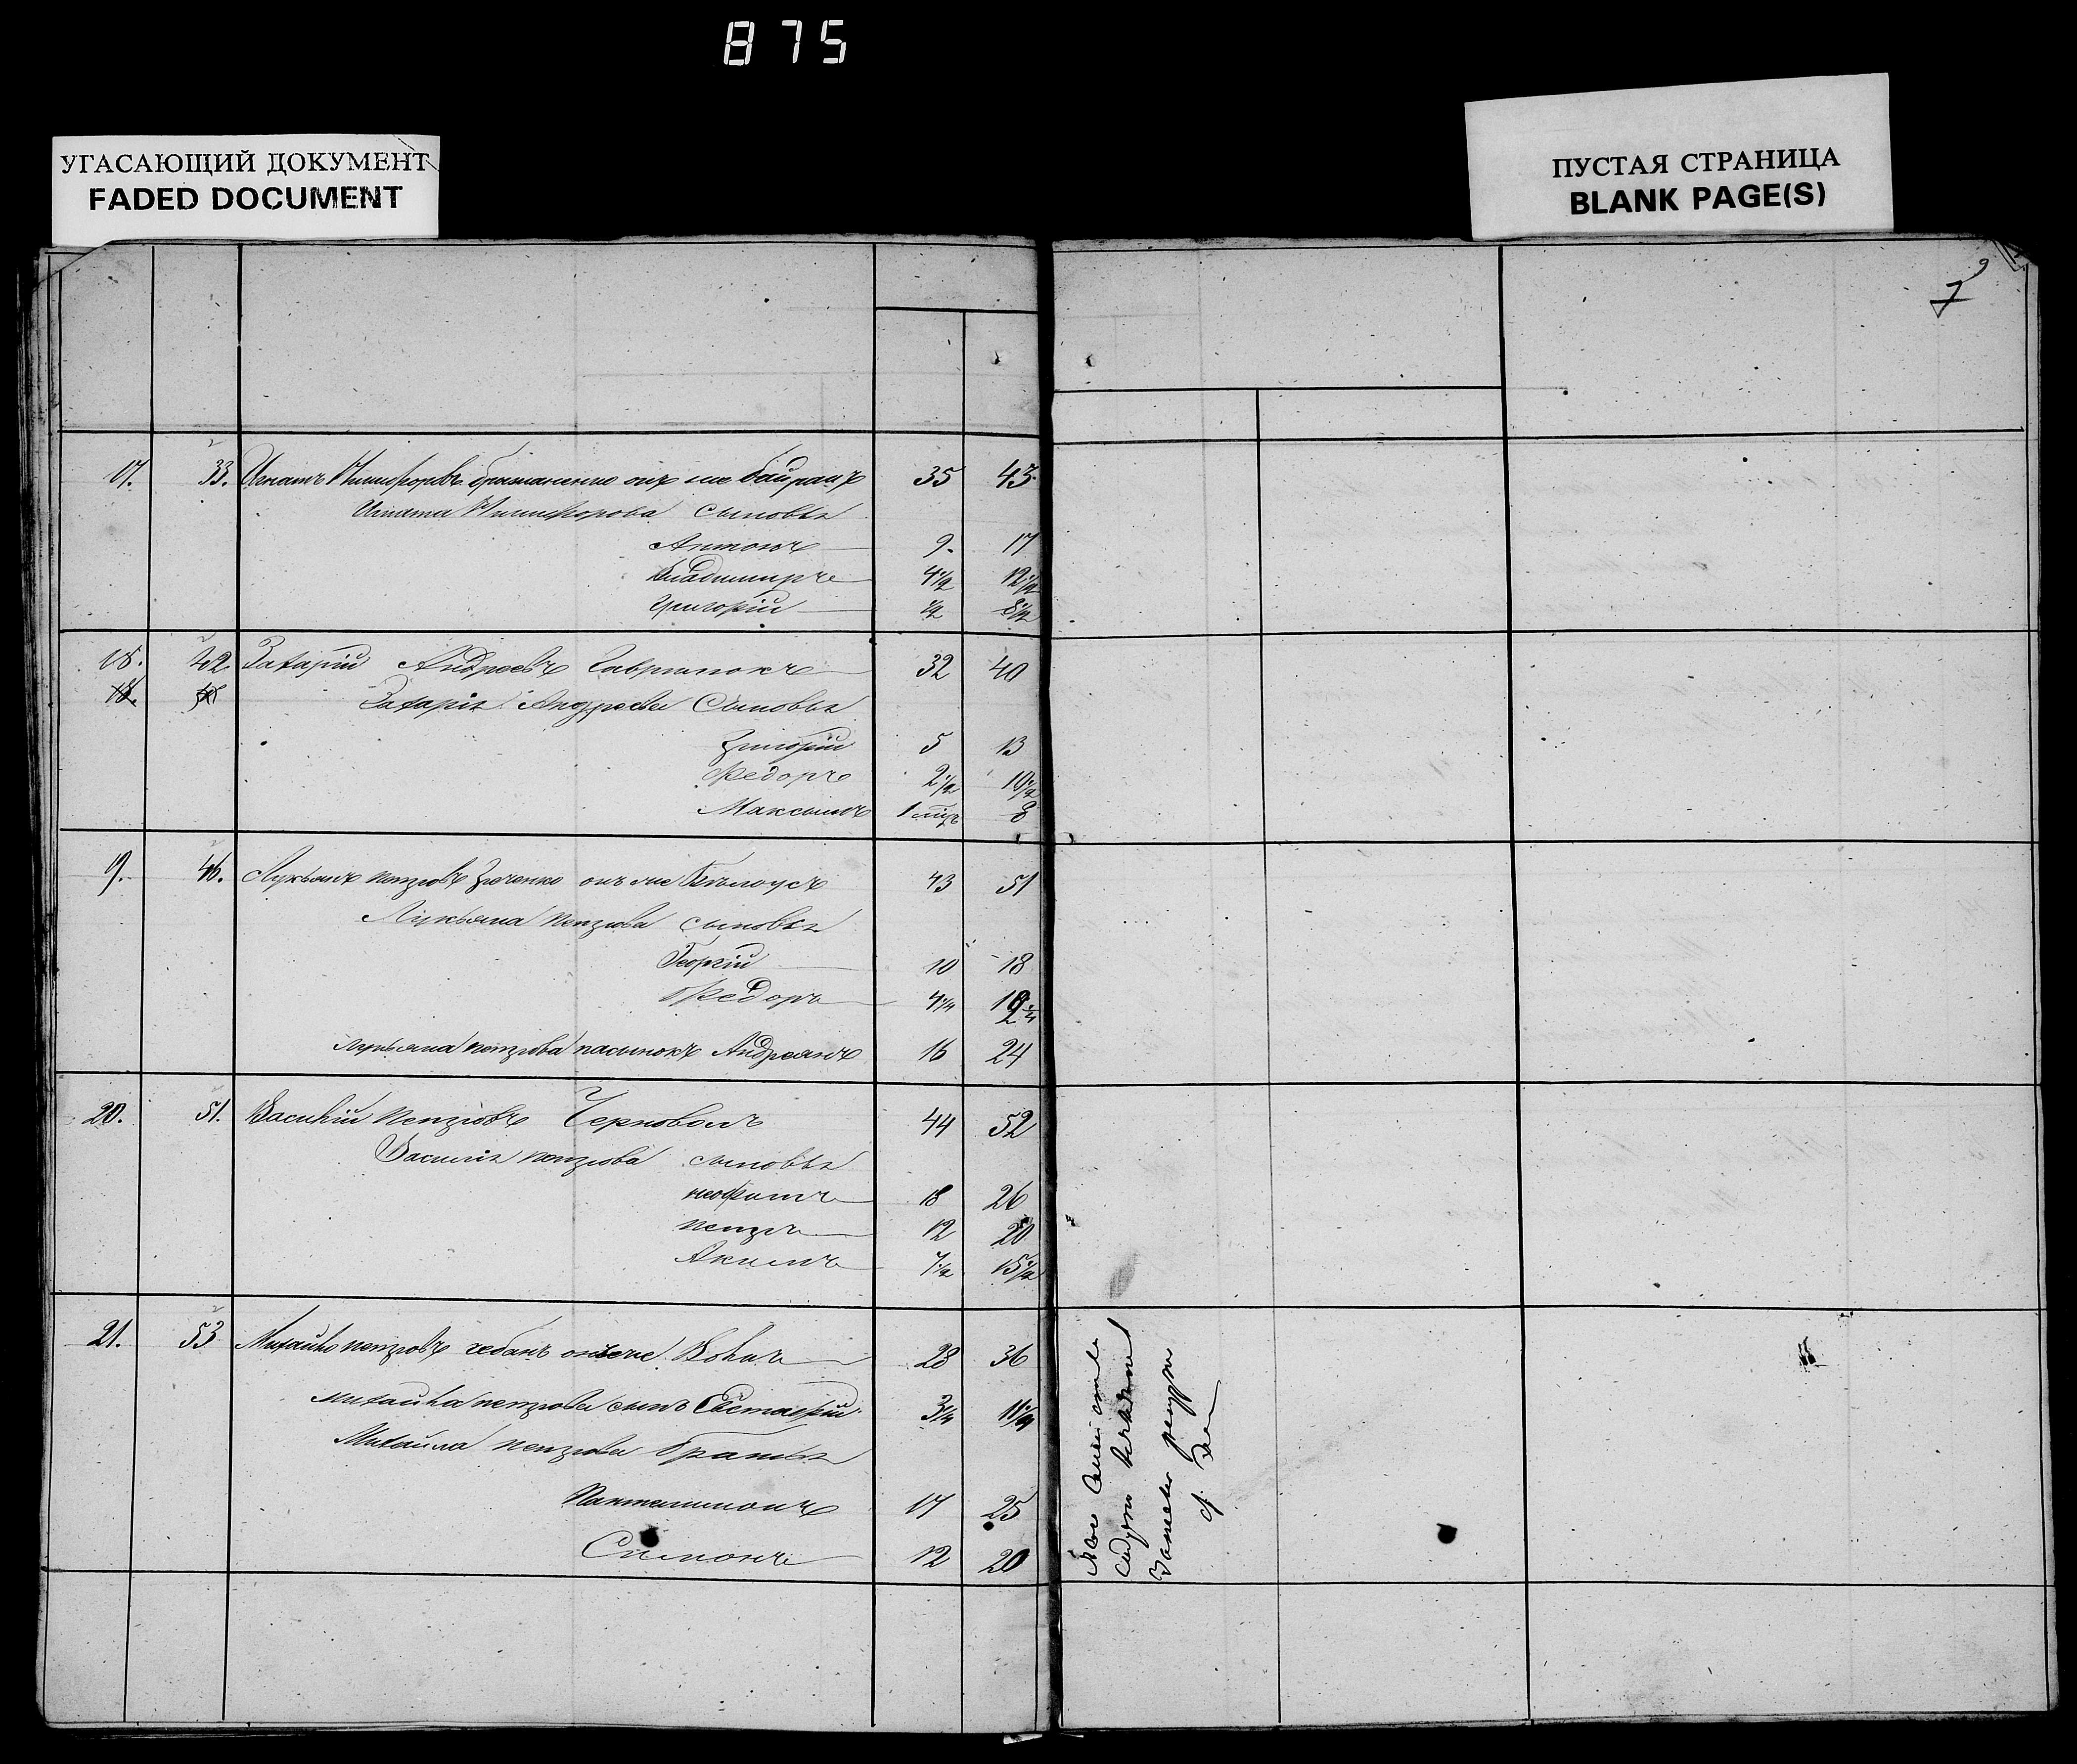 875
УГАСАЮЩИЙ ДОКУМЕНТ
FADED DOCUMENT
ПУСТАЯ СТРАНИЦА
BLANK PAGE(S)
9
7
17. 33. Игнатъ Никифоровъ онъ же 35 43
Игната Никифорова сыновья
Антонъ 9. 17
Владимиръ 4½ 12½
Григорій ½ 8½
18. 42 Захарій Андреевъ Гаврилюкъ 32 40
Захарія Андреева Сыновья
Григорій 5 13
Федоръ 2½ 10½
Максимъ 1 8
19. 46. Лукьянъ Петровъ онъ же Бѣлоусъ 43 51
Лукьяна Петрова сыновья
Георгій 10 18
Федоръ 4¼ 12¼
Лукьяна Петрова пасынокъ Андреянъ 16 24
20. 51. Василій Петровъ Черноволъ 44 52
Василія Петрова сыновья
18 26
Петръ 12 20
Акимъ 7½ 15½
21. 53 Михайло Петровъ чебанъ онъ же 28 36
Михайла Петрова сынъ Евстафій 3¼ 11¼
Михайла Петрова братья
Пантелимонъ 17 25
Симонъ 12 20